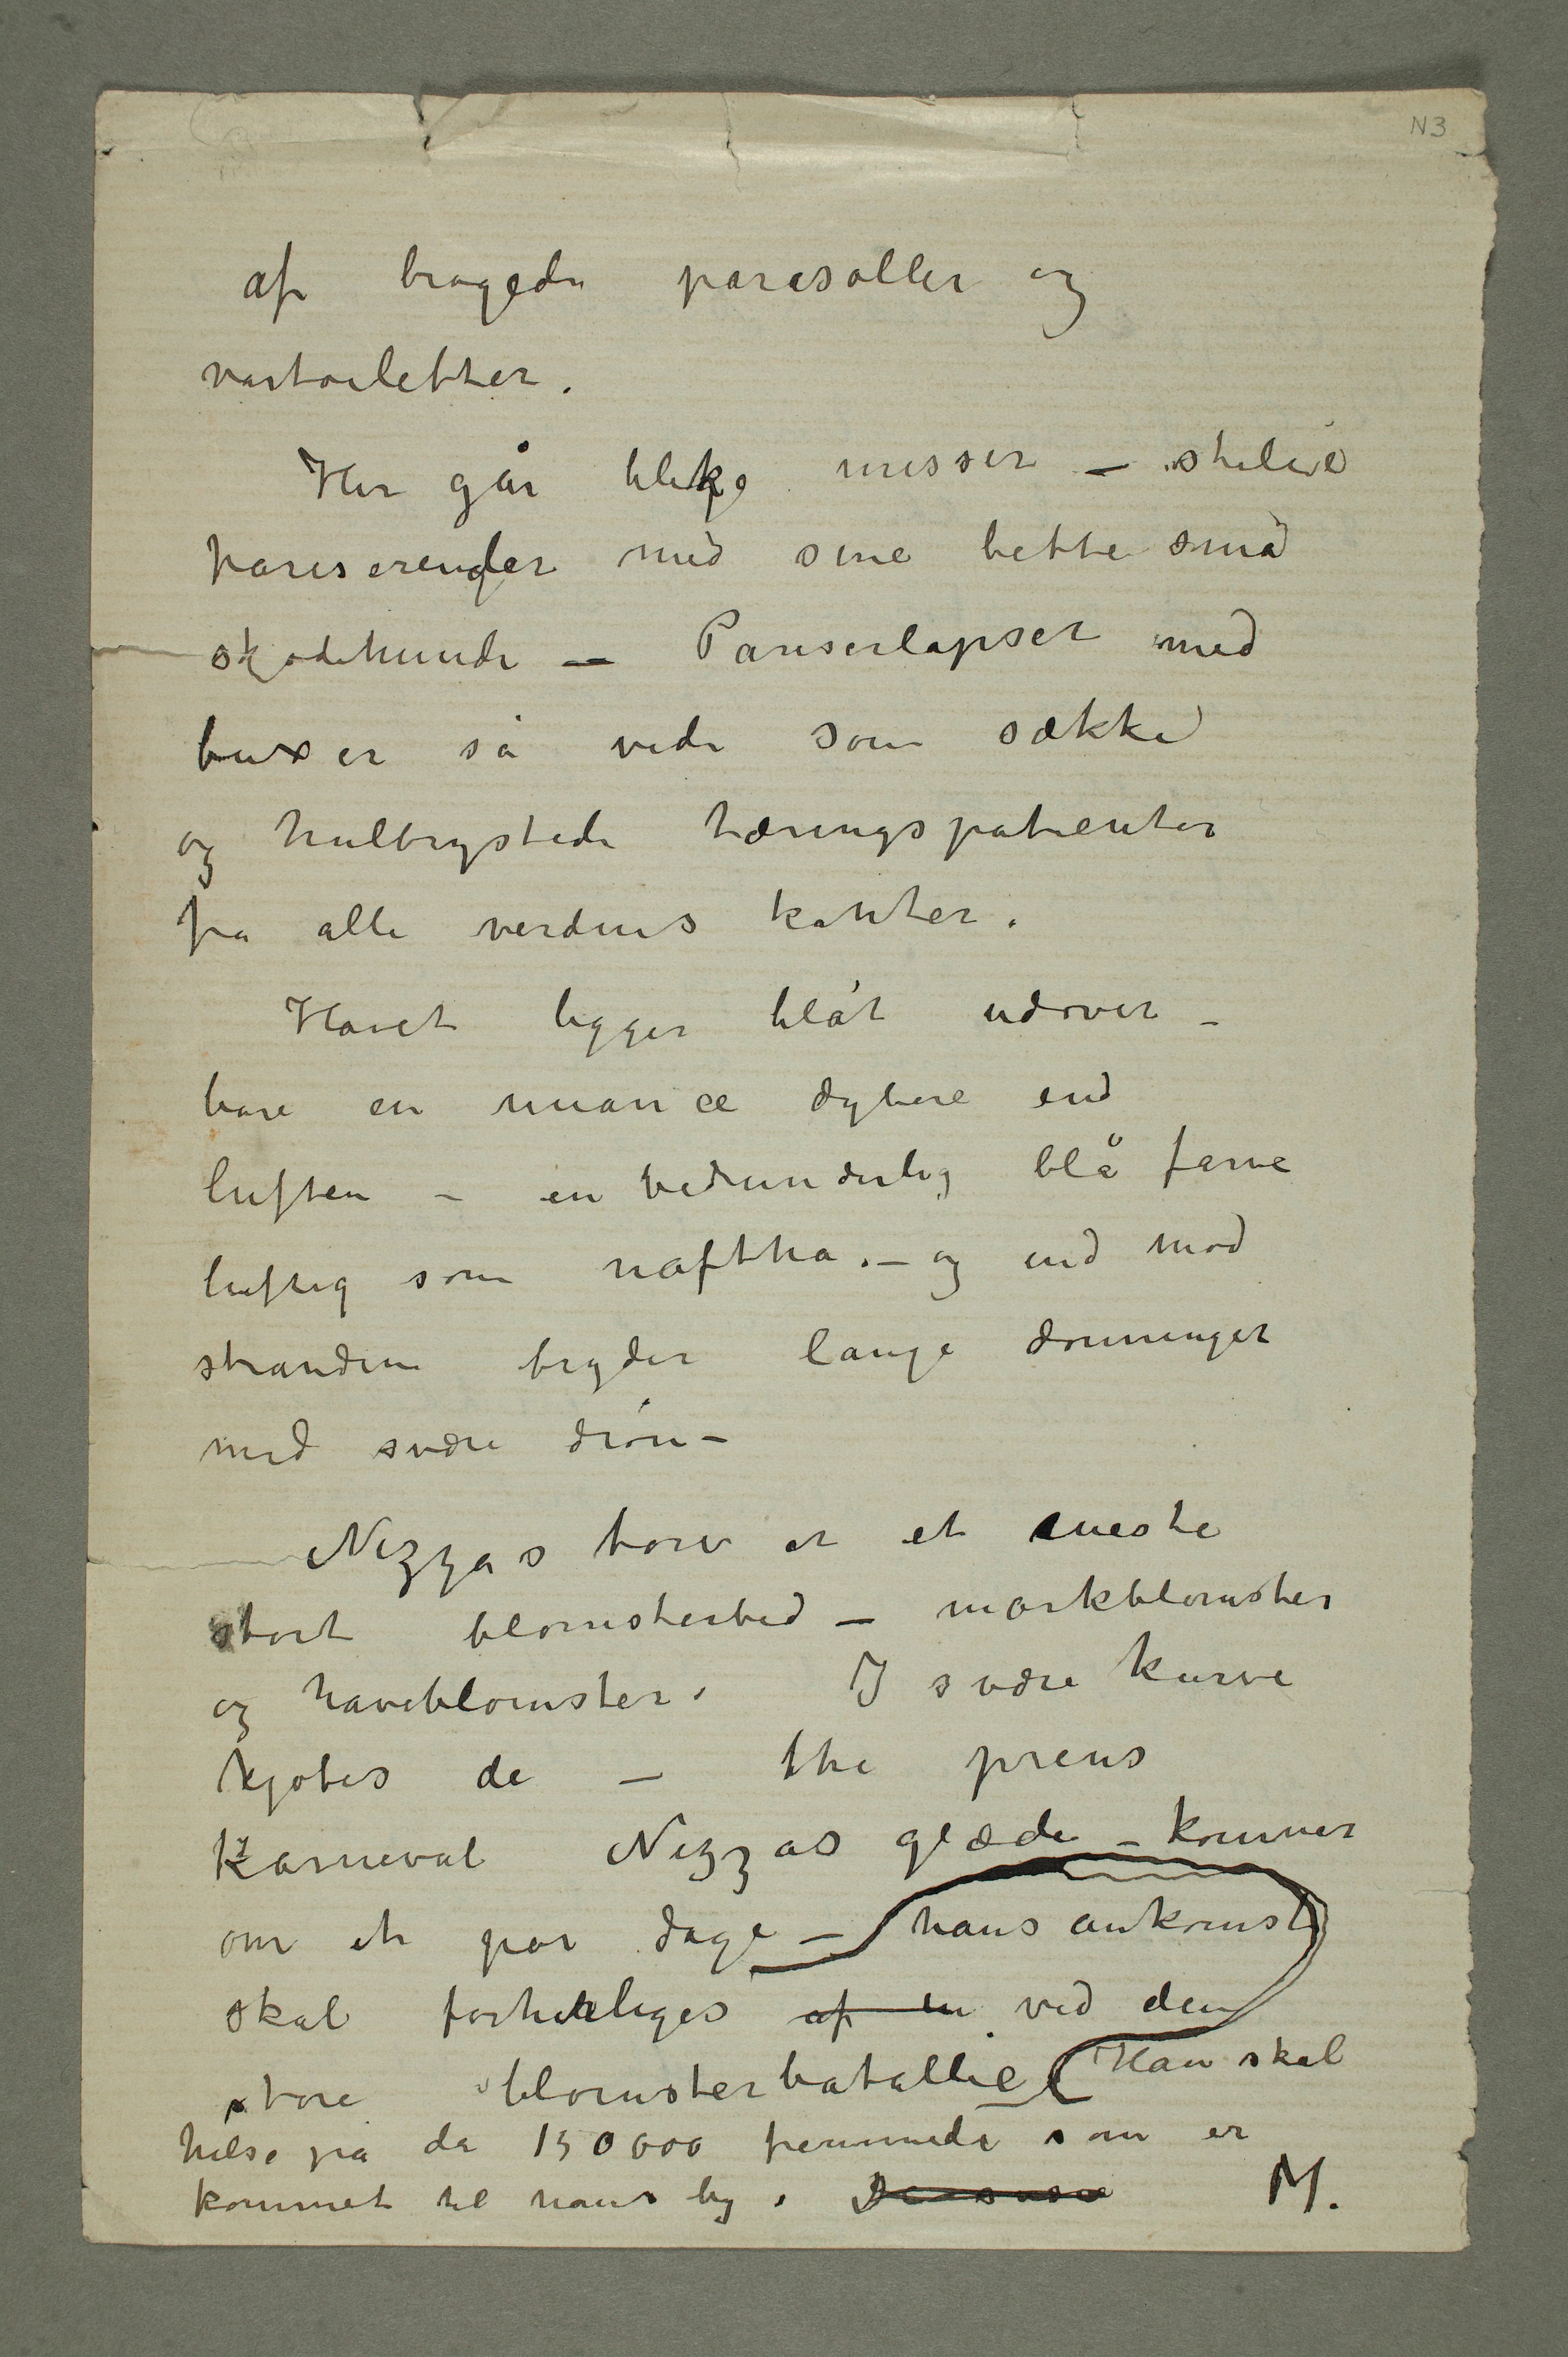 N3
af brogede parasoller og
vårtoiletter.
Her går blege misser – stilige
pariserender med sine bitte små
skjødehunde – Pariserlapser med
buxer så vide som sække
og hulbrystede tæringspatienter
fra alle verdens kanter.
Havet ligger blåt udover –
bare en nuance dybere end
luften – en vidunderlig blå farve
luftig som naftha. – og ind mod
strandene bryder lange dønninger
med svære drøn –
Nizzas torv er et eneste
stort blomsterbed – markblomster
og haveblomster. I svære kurve
kjøbes de – thi prins
Karneval Nizzas glæde – kommer
om et par dage – hans ankomst
skal forherliges af en ved den
store blomsterbatallie Han skal
hilse på de 150000 fremmede som er
kommet til hans by. M.